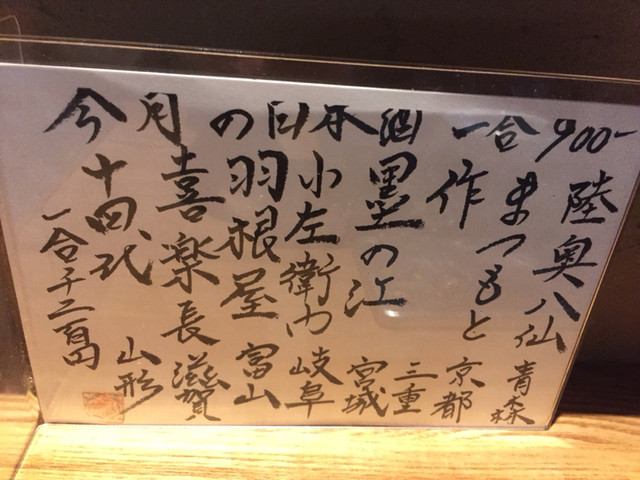 今月の日本酒 一合900-
陸奥八仙 青森
まつもと 京都
作 三重
墨の江 宮城
小左衛門 岐阜
羽根屋 富山
喜楽長 滋賀
十四代 山形
一合千二百円